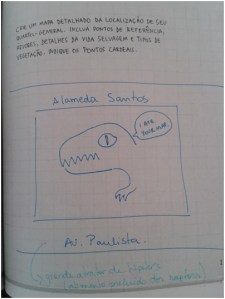 CRIE UM MAPA DETALHADO DA LOCALIZAÇÃO DE SEU
QUARTEL-GENERAL. INCLUA PONTOS DE REFERÊNCIA,
ÁRVORES, DETALHES DA VIDA SELVAGEM E TIPOS DE
VEGETAÇÃO. INDIQUE OS PONTOS CARDEAIS.
Alameda Santos
I ATE
YOUR MAP.
AV. Paulista.
de hipsters